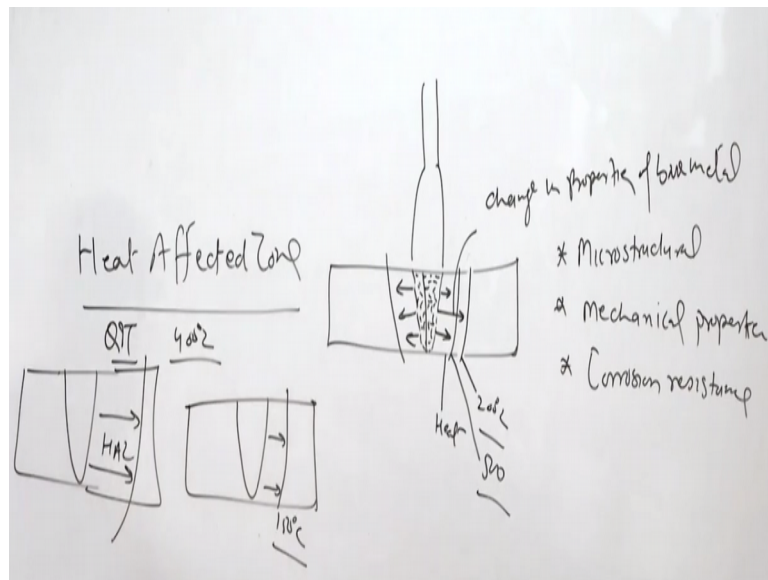 Heat Affected Zone
Q&T 400°C
HAZ
150°C
change in properties of base metal
* Microstructural
* Mechanical properties
* Corrosion resistance
Heat
200°C